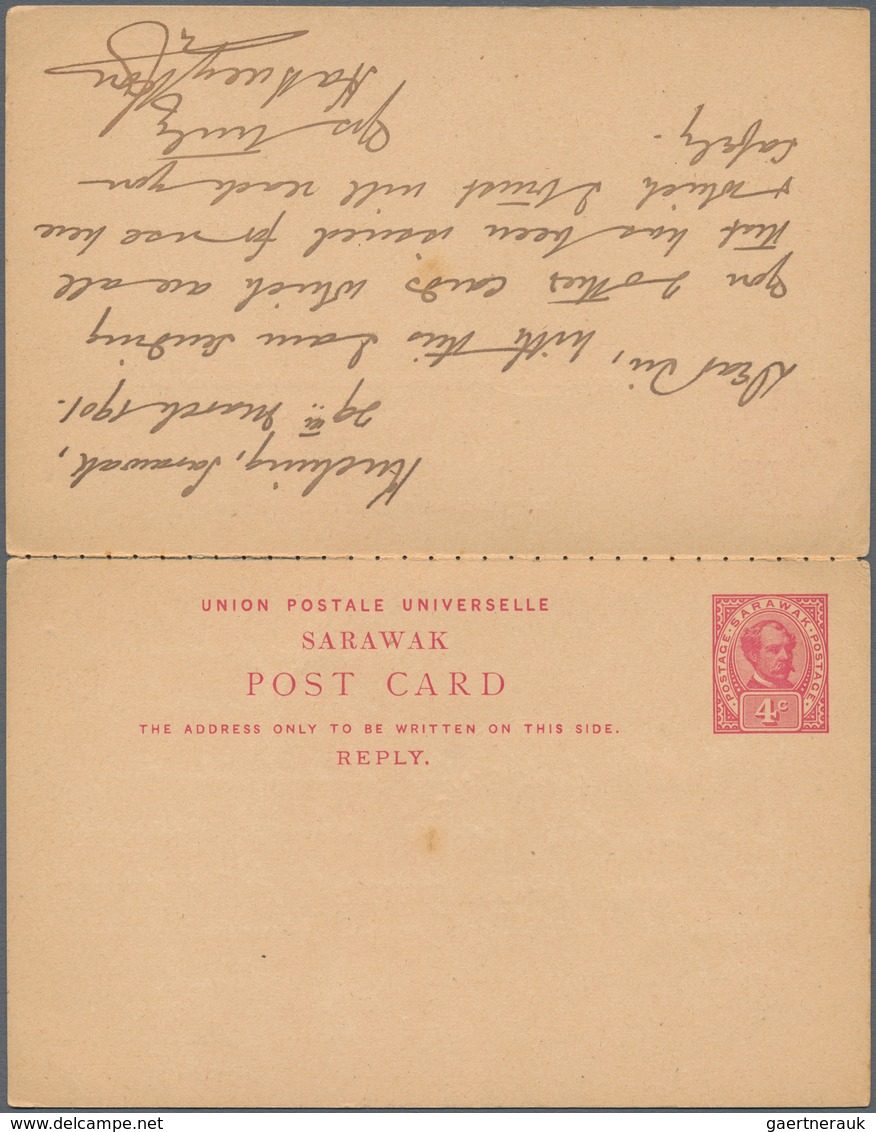 Kuching, Sarawak,
29th March 1901.
Dear Sir, With this I am sending
you 2 other cards which are all
that has been issued for use here
& which I trust will reach you
safely.
Yrs truly
UNION POSTALE UNIVERSELLE
SARAWAK
POST CARD
THE ADDRESS ONLY TO BE WRITTEN ON THIS SIDE.
REPLY.
POSTAGE · SARAWAK · POSTAGE
4c
gaertnerauk